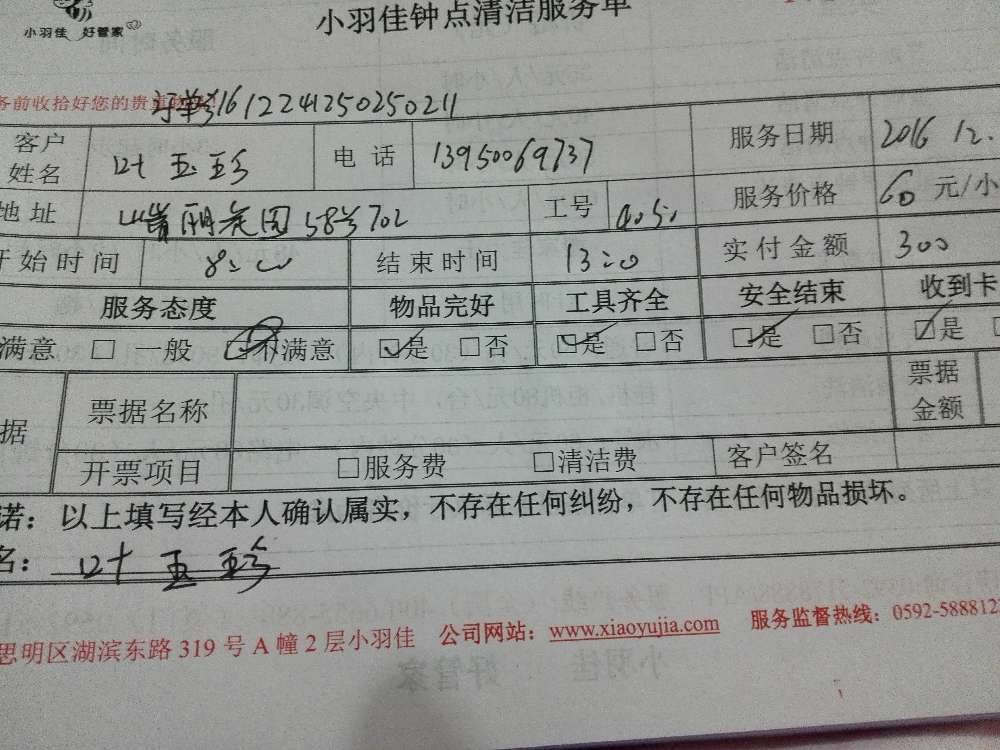 小羽佳 好管家
小羽佳钟点清洁服务单
务前收拾好您的贵重 订单号1612241250250211
客户姓名 叶玉珍 电话 13950069737 服务日期 2016 12.
地址 丽景花园58号702 工号 服务价格 60 元/小
开始时间 8:00 结束时间 13:00 实付金额 300
服务态度 物品完好 工具齐全 安全结束 收到卡
满意 □一般 ☑不满意 ☑是 □否 ☑是 □否 ☑是 □否 ☑是
据 票据名称 票据金额
开票项目 □服务费 □清洁费 客户签名
诺：以上填写经本人确认属实，不存在任何纠纷，不存在任何物品损坏。
名：叶玉珍
思明区湖滨东路 319 号 A 幢 2 层小羽佳 公司网站：www.xiaoyujia.com 服务监督热线：0592-588812